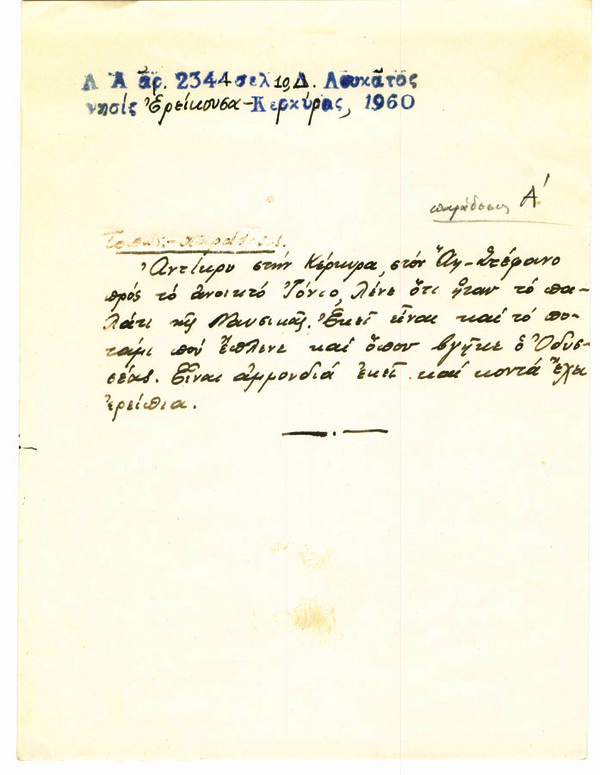 Λ Α ἀρ. 2344 σελ 19, Δ. Λουκᾶτος
νησίς Ἐρείκουσα-Κερκύρας, 1960
παράδοσεις Α΄
Ἀντίκρυ στήν Κέρκυρα, στόν Ἅη-Στέφανο
πρός τό ἀνοικτό Ἰόνιο, λένε ὅτι ἦταν τό πα-
λάτι τῆς Ναυσικᾶς. Ἐκεῖ εἶναι καί τό πο-
τάμι πού ἔπλενε καί ὅπου βγῆκε ὁ Ὀδυσ-
σέας. Εἶναι ἀμμουδιά ἐκεῖ καί κοντά ἔχει
ἐρείπια.